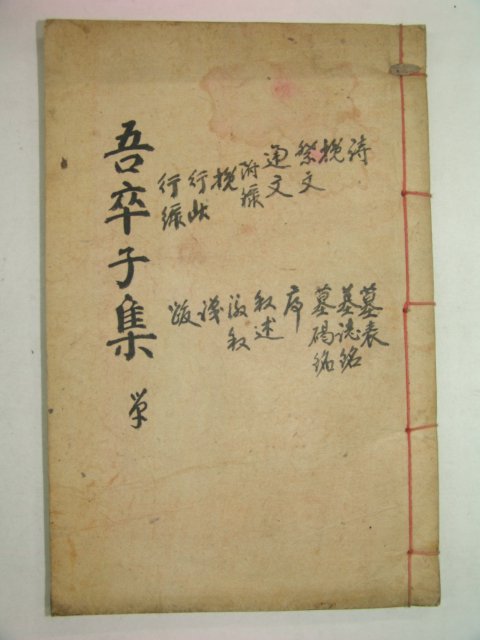 詩
挽
祭文
通文
附錄
挽
行狀
行錄
墓表
墓誌銘
墓碣銘
序
敘述
後敘
識
跋
吾卒子集
單